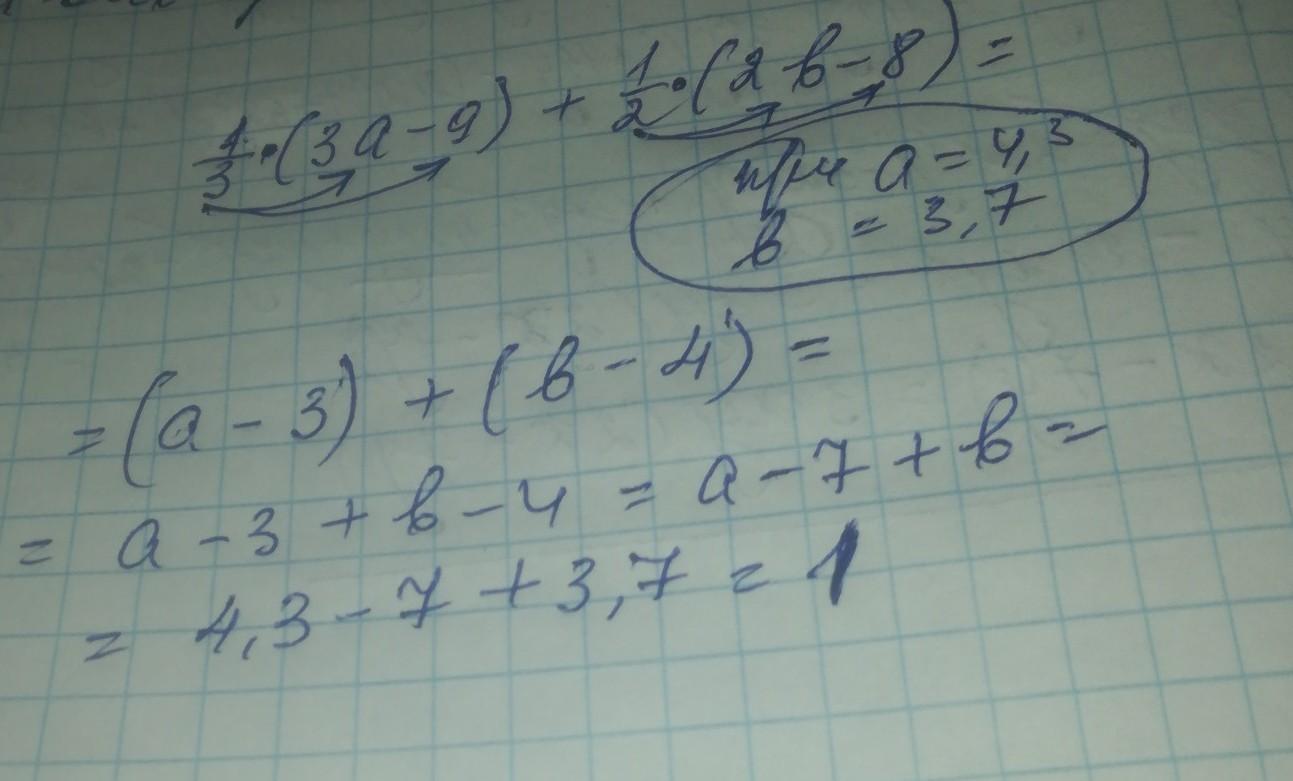 1/3 · (3a - 9) + 1/2 · (2b - 8) =
при a = 4,3
b = 3,7
= (a - 3) + (b - 4) =
= a - 3 + b - 4 = a - 7 + b =
= 4,3 - 7 + 3,7 = 1